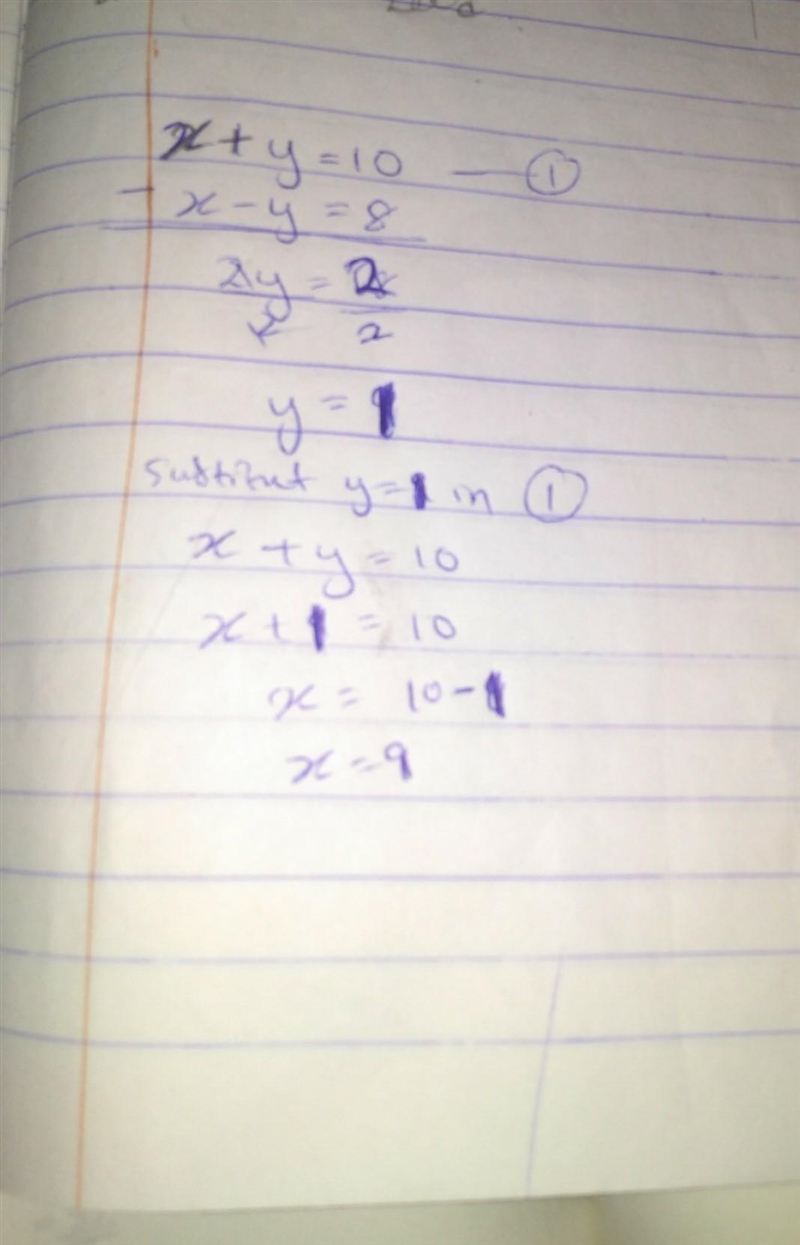 x + y = 10 — ①
- x - y = 8
2y = 2
2 2
y = 1
Substitut y = 1 in ①
x + y = 10
x + 1 = 10
x = 10 - 1
x = 9